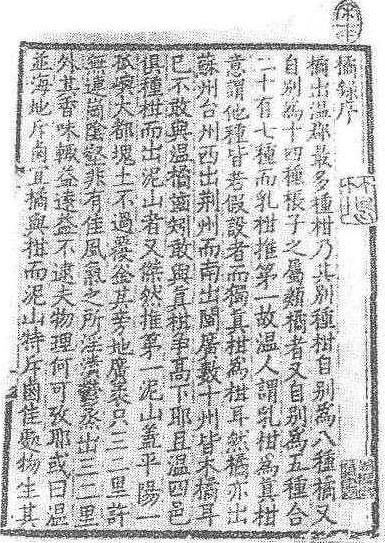 橘録序
橘出温郡最多種柑乃其别種柑自别為八種橘又
自别為十四種橙子之屬類橘者又自别為五種合
二十有七種而乳柑推第一故温人謂乳柑為真柑
意謂他種皆若假設者而獨真柑為柑耳然橘亦出
蘇州台州西出荆州而南出閩廣數十州皆木橘耳
已不敢與温橘齒矧敢與真柑爭高下耶且温四邑
俱種柑而出泥山者又傑然推第一泥山蓋平陽一
孤嶼大都塊土不過覆釜其旁地廣袤只三二里許
無連崗陰壑非有佳風氣之所淫漬鬱蒸出三二里
外其香味輒益遠益不逮夫物理何可攷耶或曰温
並海地斥鹵宜橘與柑而泥山特斥鹵佳處物生其